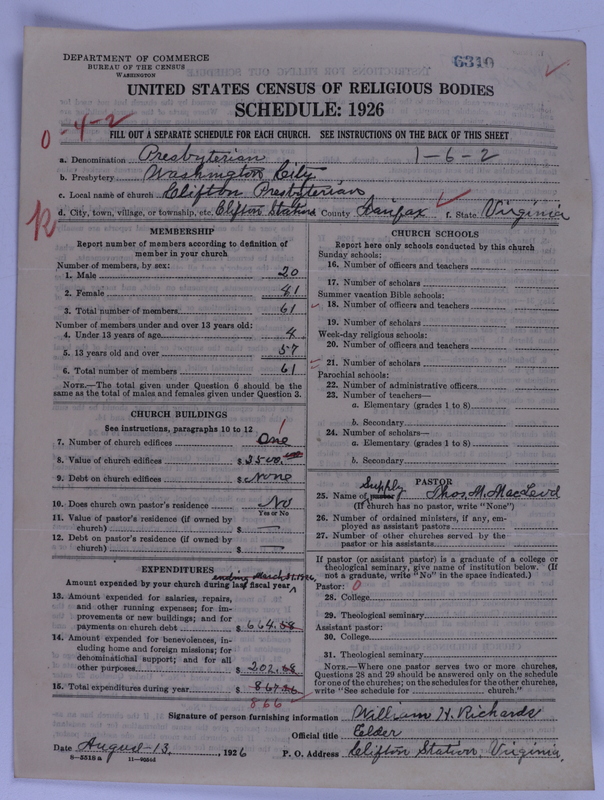 DEPARTMENT OF COMMERCE
BUREAU OF THE CENSUS
WASHINGTON
6310
UNITED STATES CENSUS OF RELIGIOUS BODIES
SCHEDULE: 1926
0-4-2
FILL OUT A SEPARATE SCHEDULE FOR EACH CHURCH. SEE INSTRUCTIONS ON THE BACK OF THIS SHEET
a. Denomination Presbyterian 1-6-2
b. Presbytery Washington City
c. Local name of church Clifton Presbyterian
d. City, town, village, or township, etc. Clifton Station County Fairfax f. State Virginia
MEMBERSHIP
Report number of members according to definition of member in your church
Number of members, by sex:
1. Male 20
2. Female 41
3. Total number of members 61
Number of members under and over 13 years old:
4. Under 13 years of age 4
5. 13 years old and over 57
6. Total number of members 61
NOTE.—The total given under Question 6 should be the same as the total of males and females given under Question 3.
CHURCH BUILDINGS
See instructions, paragraphs 10 to 12
7. Number of church edifices One 1
8. Value of church edifices $ 2500.
9. Debt on church edifices $ None
10. Does church own pastor's residence No
Yes or No
11. Value of pastor's residence (if owned by church) $ —
12. Debt on pastor's residence (if owned by church) $ —
EXPENDITURES
ending March 31, 1926
Amount expended by your church during last fiscal year
13. Amount expended for salaries, repairs, and other running expenses; for improvements or new buildings; and for payments on church debt $ 664.
14. Amount expended for benevolences, including home and foreign missions; for denominational support; and for all other purposes $ 202.
15. Total expenditures during year $
866
CHURCH SCHOOLS
Report here only schools conducted by this church
Sunday schools:
16. Number of officers and teachers
17. Number of scholars
Summer vacation Bible schools:
18. Number of officers and teachers
19. Number of scholars
Week-day religious schools:
20. Number of officers and teachers
21. Number of scholars
Parochial schools:
22. Number of administrative officers
23. Number of teachers—
a. Elementary (grades 1 to 8)
b. Secondary
24. Number of scholars—
a. Elementary (grades 1 to 8)
b. Secondary
PASTOR
Supply
25. Name of pastor Thos. M. MacLeod
(If church has no pastor, write "None")
26. Number of ordained ministers, if any, employed as assistant pastors
27. Number of other churches served by the pastor or his assistants
If pastor (or assistant pastor) is a graduate of a college or theological seminary, give name of institution below. (If not a graduate, write "No" in the space indicated.)
Pastor: 0
28. College
29. Theological seminary
Assistant pastor:
30. College
31. Theological seminary
NOTE.—Where one pastor serves two or more churches, Questions 28 and 29 should be answered only on the schedule for one of the churches; on the schedules for the other churches, write "See schedule for church."
Signature of person furnishing information William H. Richards
Official title Elder
Date August-13, 1926 P. O. Address Clifton Station, Virginia.
8-5518a